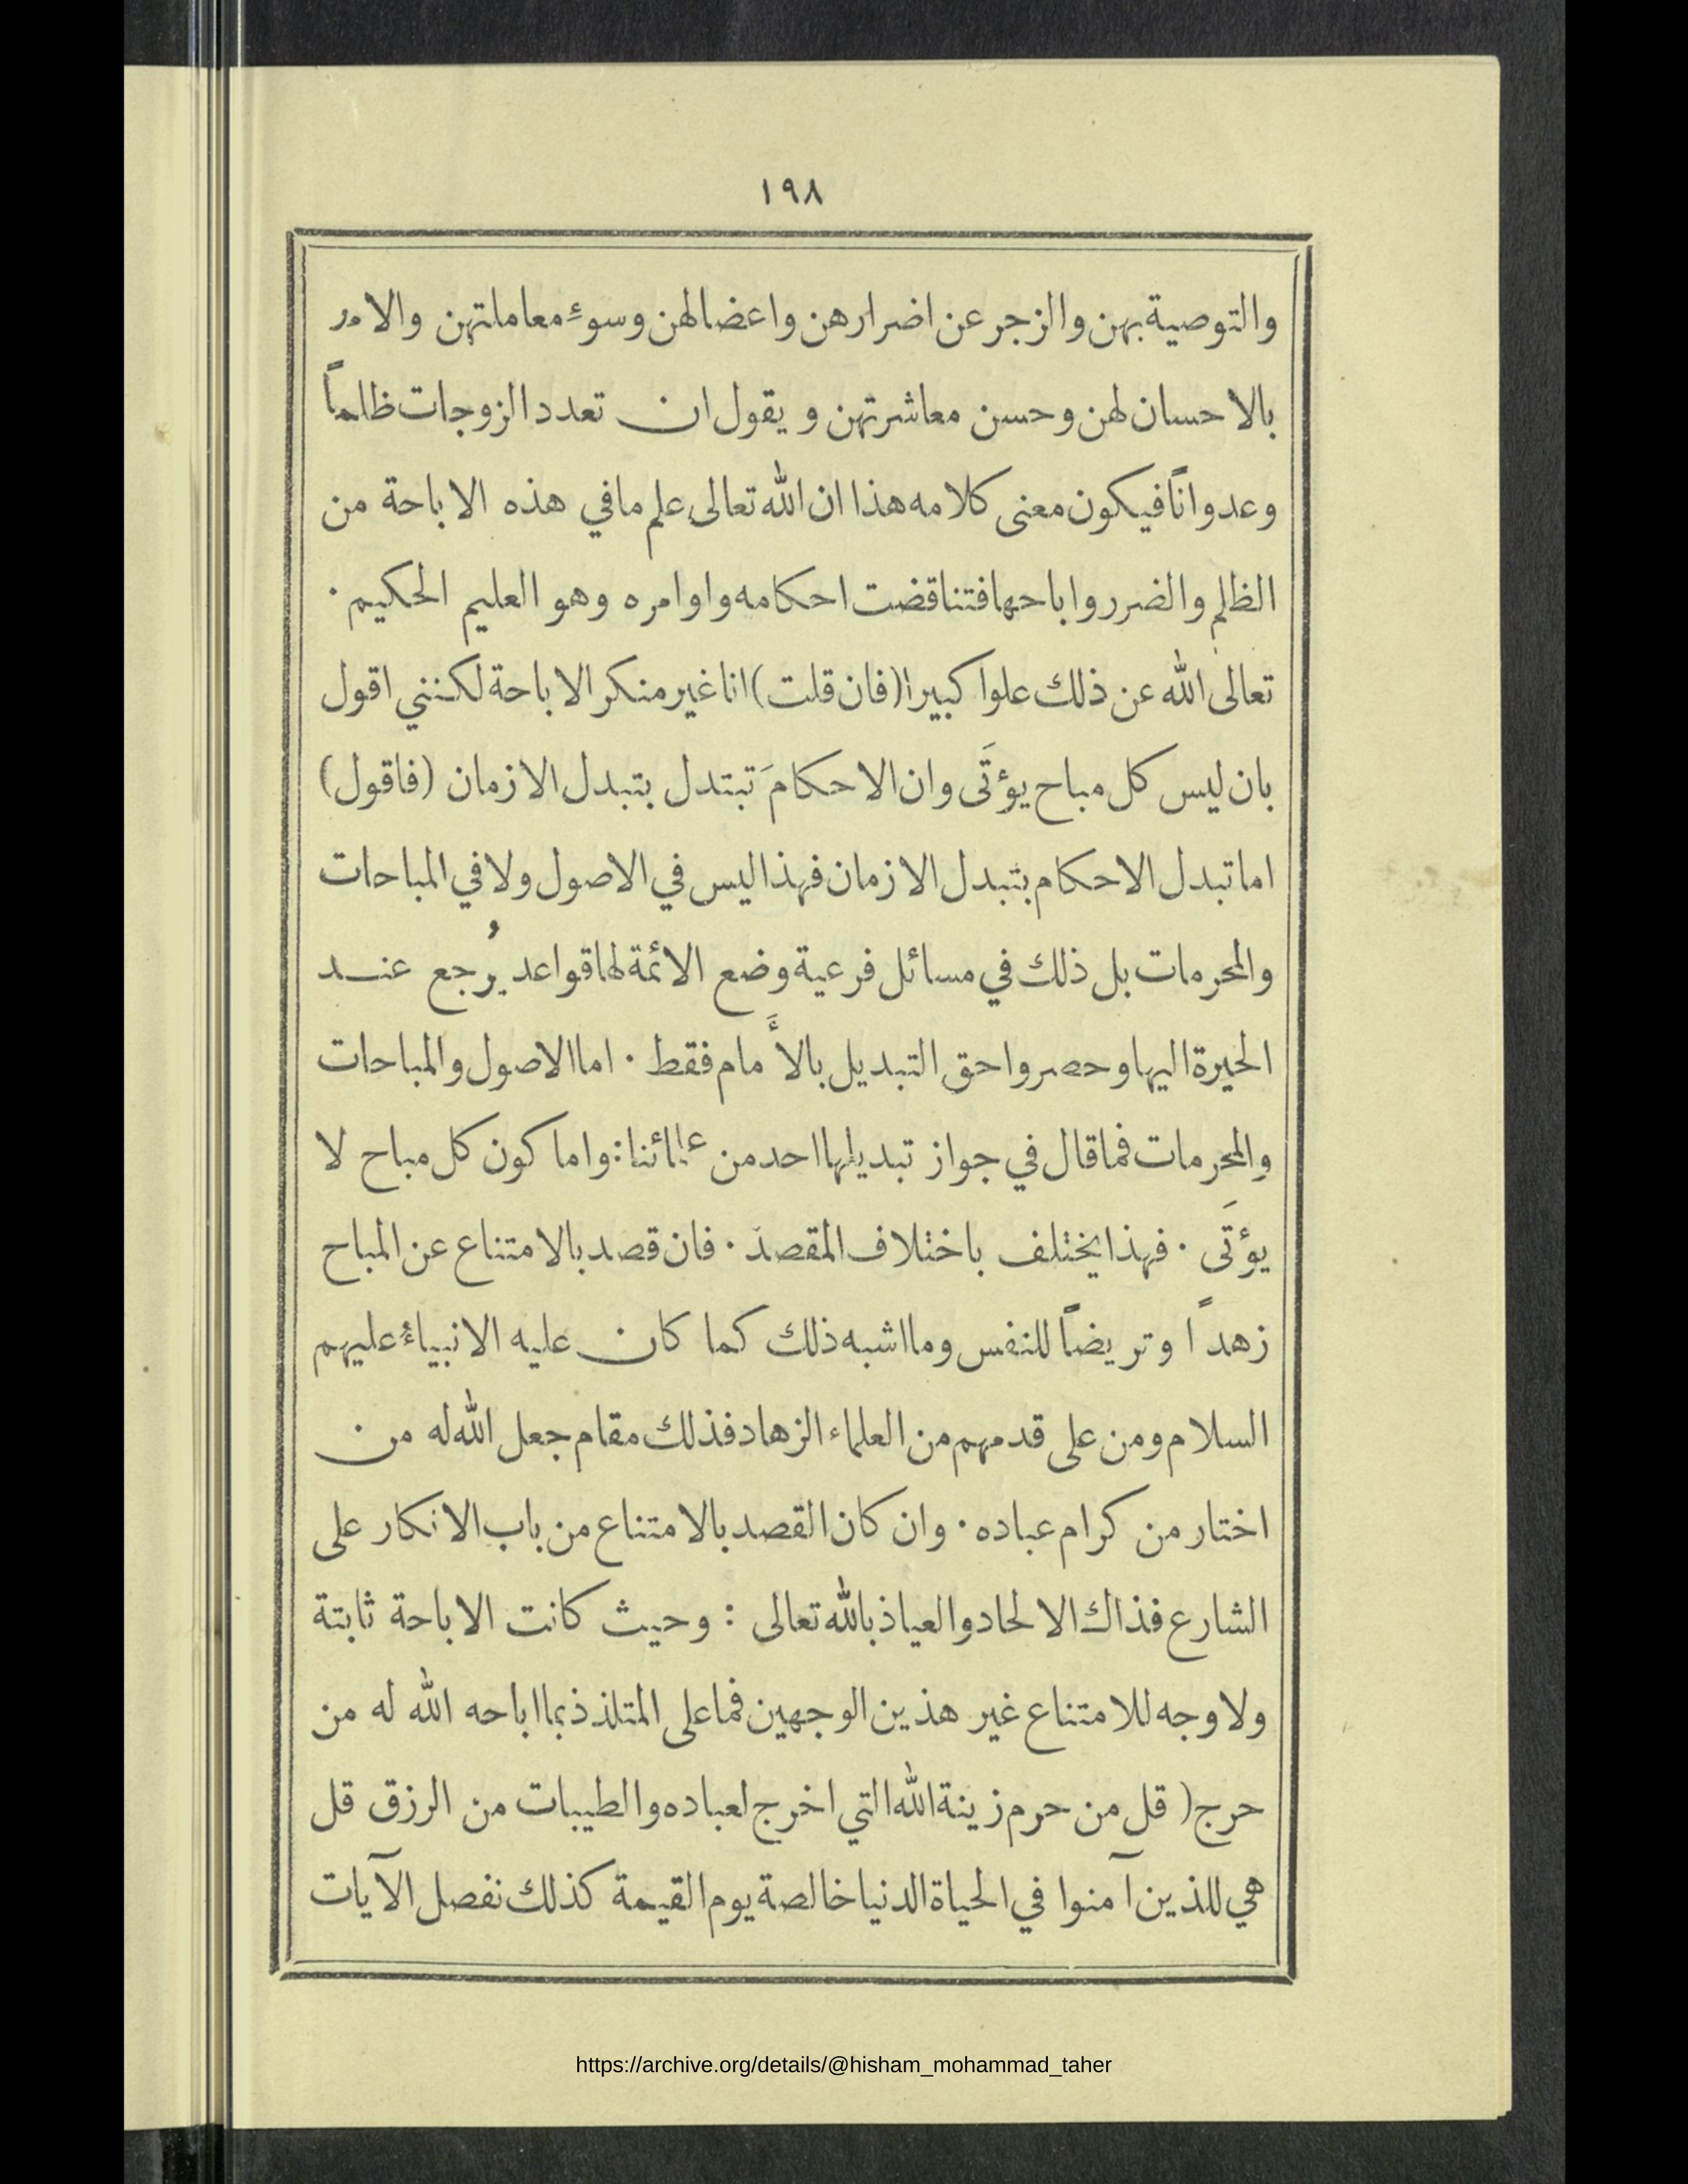 ١٩٨
والتوصية بهن والزجر عن اضرارهن واعضالهن وسوء معاملتهن والامر
بالاحسان لهن وحسن معاشرتهن ويقول ان تعدد الزوجات ظلماً
وعدواناً فيكون معنى كلامه هذا ان الله تعالى علم مافي هذه الاباحة من
الظلم والضرر واباحها فتناقضت احكامه واوامره وهو العليم الحكيم ·
تعالى الله عن ذلك علوا كبيرا (فان قلت) انا غير منكر الاباحة لكنني اقول
بان ليس كل مباح يؤتَى وان الاحكامَ تبتدل بتبدل الازمان (فاقول)
اما تبدل الاحكام بتبدل الازمان فهذا ليس في الاصول ولا في المباحات
والمحرمات بل ذلك في مسائل فرعية وضع الائمة لها قواعد يُرجع عند
الحيرة اليها وحصروا حق التبديل بالأَمام فقط · اما الاصول والمباحات
والمحرمات فما قال في جواز تبديلها احد من علمائنا : واما كون كل مباح لا
يؤتَى · فهذا يختلف باختلاف المقصد · فان قصد بالامتناع عن المباح
زهداً وتريضاً للنفس وما اشبه ذلك كما كان عليه الانبياءُ عليهم
السلام ومن على قدمهم من العلماء الزهاد فذلك مقام جعل الله له من
اختار من كرام عباده · وان كان القصد بالامتناع من باب الانكار على
الشارع فذاك الالحاد والعياذ بالله تعالى : وحيث كانت الاباحة ثابتة
ولا وجه للامتناع غير هذين الوجهين فما على المتلذذ بما اباحه الله له من
حرج ( قل من حرم زينة الله التي اخرج لعباده والطيبات من الرزق قل
هي للذين آمنوا في الحياة الدنيا خالصة يوم القيمة كذلك نفصل الآيات
https://archive.org/details/@hisham_mohammad_taher